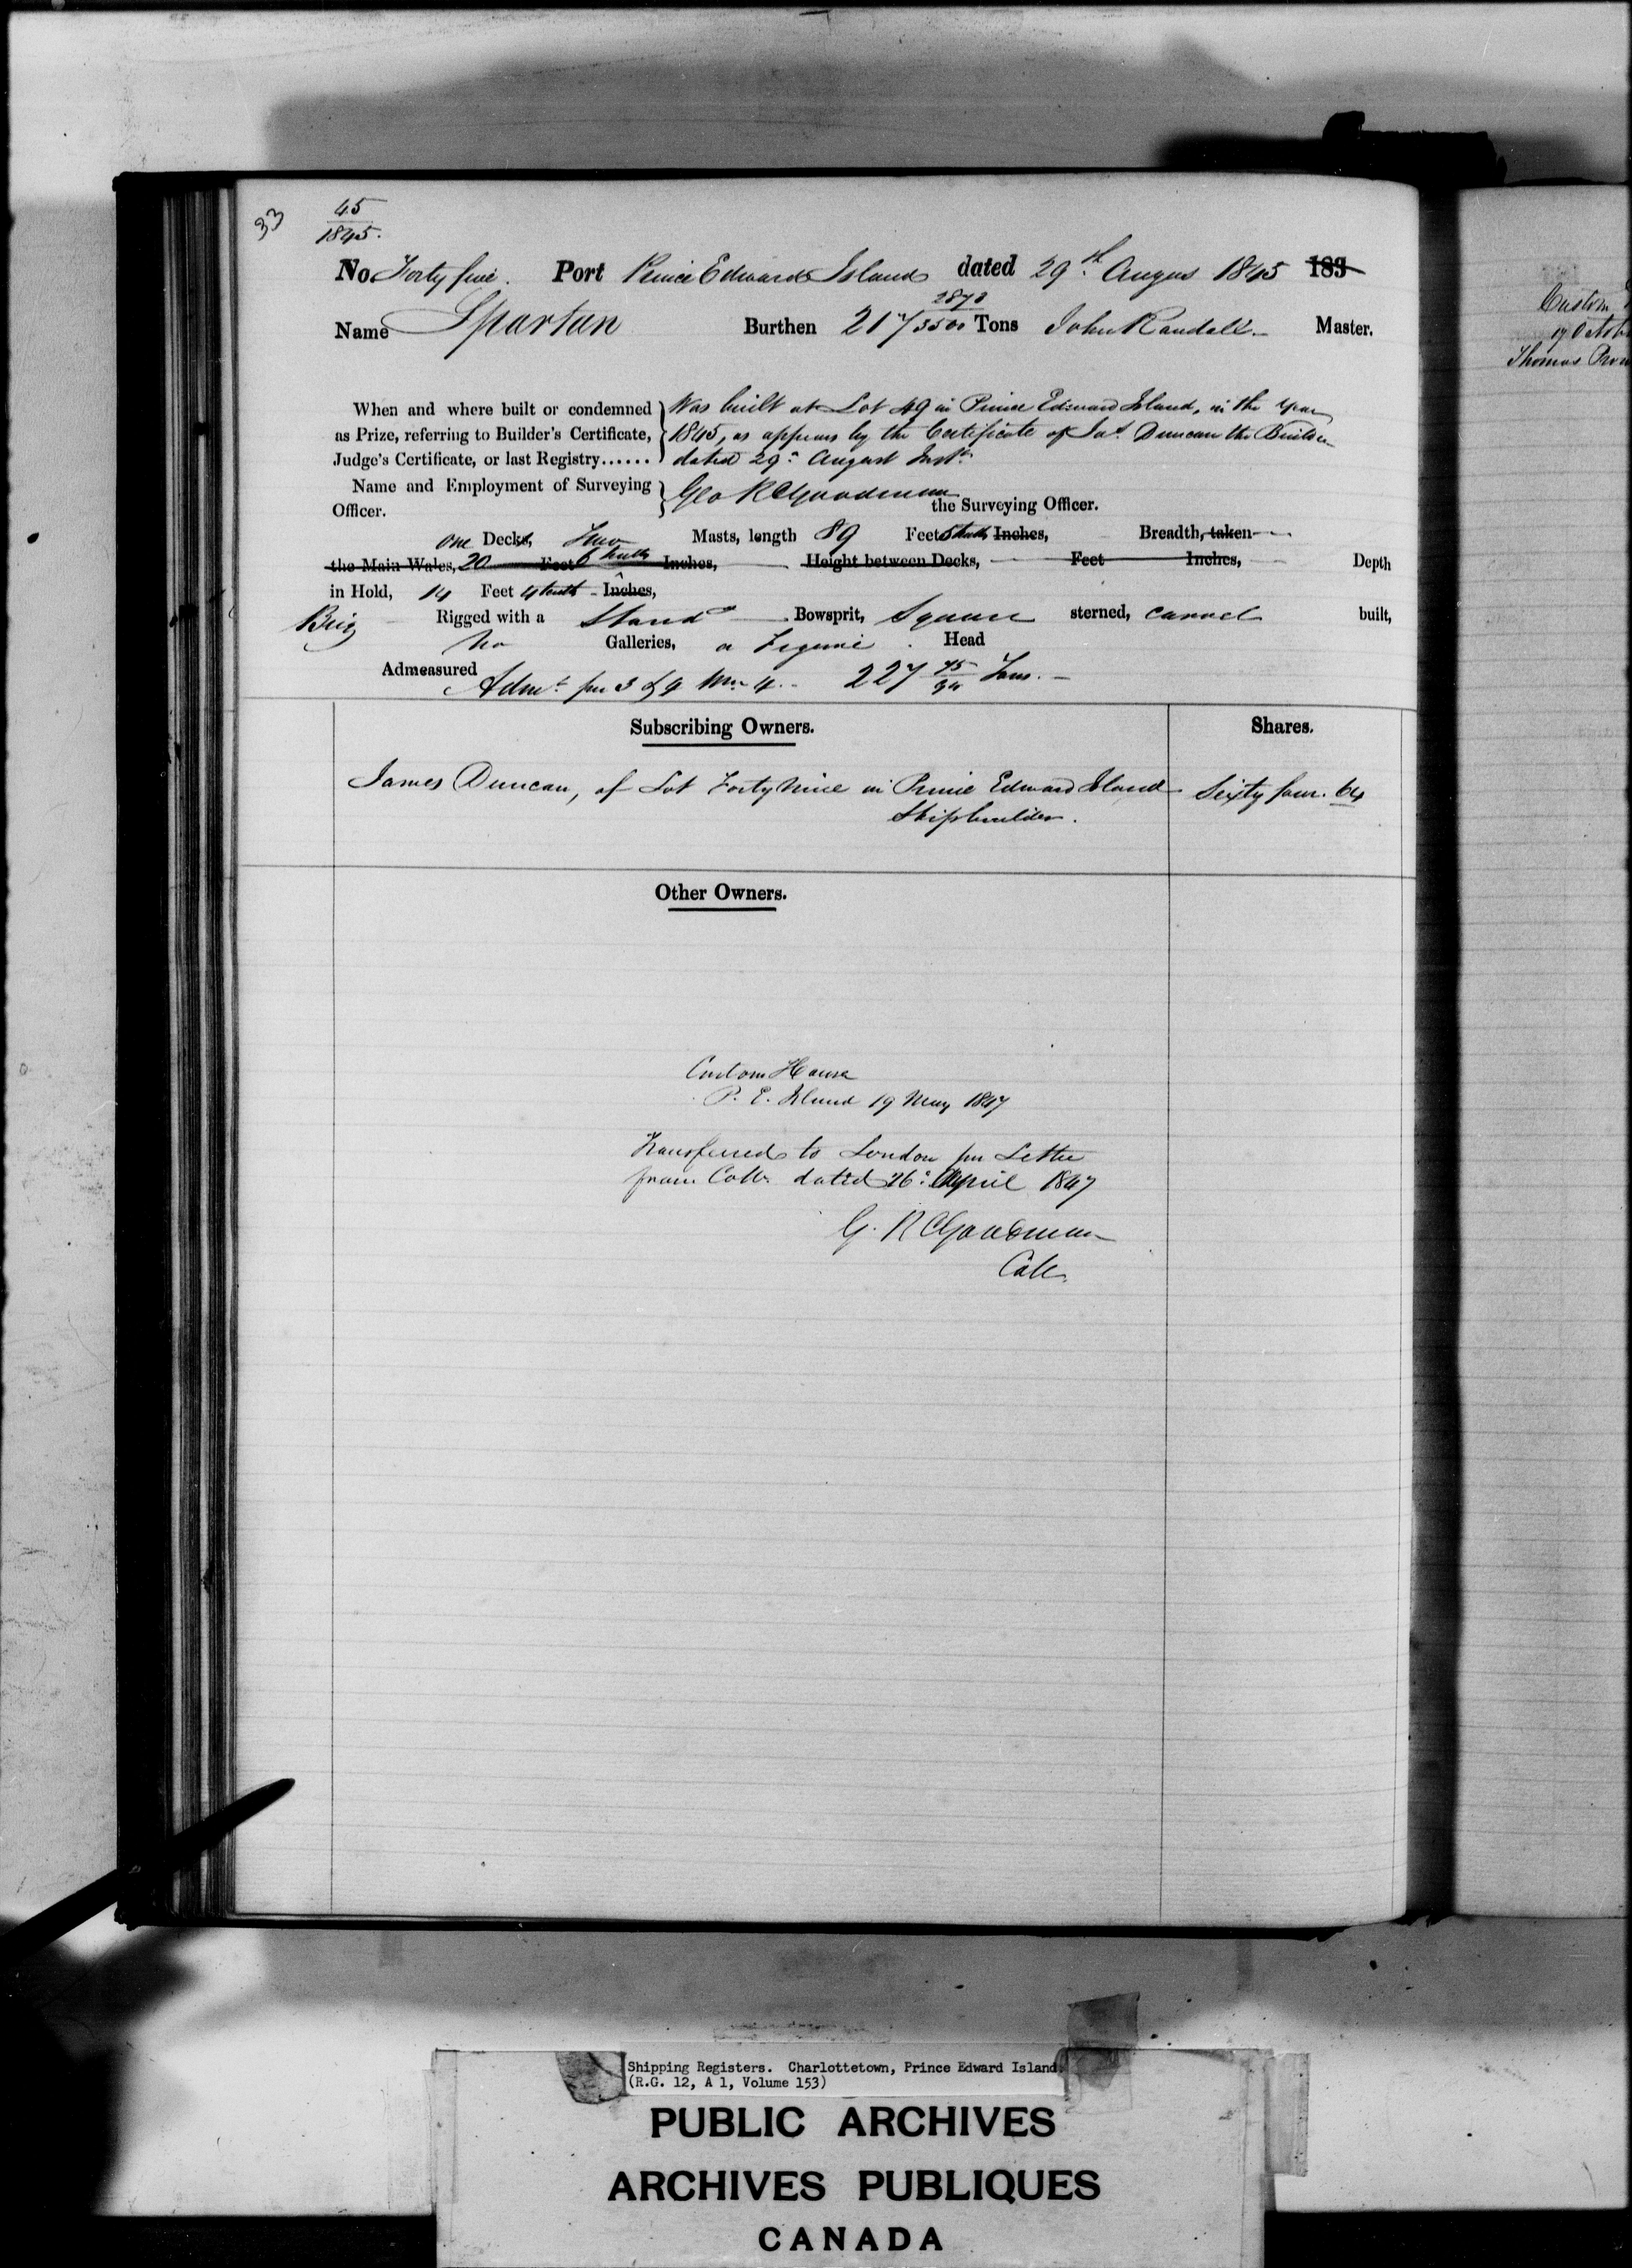 33
45
1845.
No. Forty five. Port Prince Edward Island dated 29th Augus 1845 183
Name Spartan Burthen 217 2878/3500 Tons John Randall Master.
When and where built or condemned } Was built at Lot 49 in Prince Edward Island, in the Year
as Prize, referring to Builder's Certificate, 1845, as appears by the Certificate of Jas. Duncan the Builder
Judge's Certificate, or last Registry...... dated 29th August Inst.
Name and Employment of Surveying } Geo R Goodman
Officer. the Surveying Officer.
one Decks, Two Masts, length 89 Feet 5 tenths Inches, Breadth, taken
the Main Wales, 20 Feet 6 tenths Inches, Height between Decks, Feet Inches, Depth
in Hold, 14 Feet 4 tenths Inches,
Brig Rigged with a Standg Bowsprit, Square sterned, Carvel built,
No Galleries, a Figure Head
Admeasured Admt per 3 & 4 Wm 4. 227 45/94 Tons.
Subscribing Owners. Shares.
James Duncan, of Lot Forty Nine in Prince Edward Island Sixty four. 64
Shipbuilder.
Other Owners.
Custom House
P. E. Island 19 May 1847
Transferred to London per Letter
from Collr. dated 26th April 1847
G. R Goodman
Coll.
Custom
17 Octob
Thomas
Shipping Registers. Charlottetown, Prince Edward Island.
(R.G. 12, A 1, Volume 153)
PUBLIC ARCHIVES
ARCHIVES PUBLIQUES
CANADA